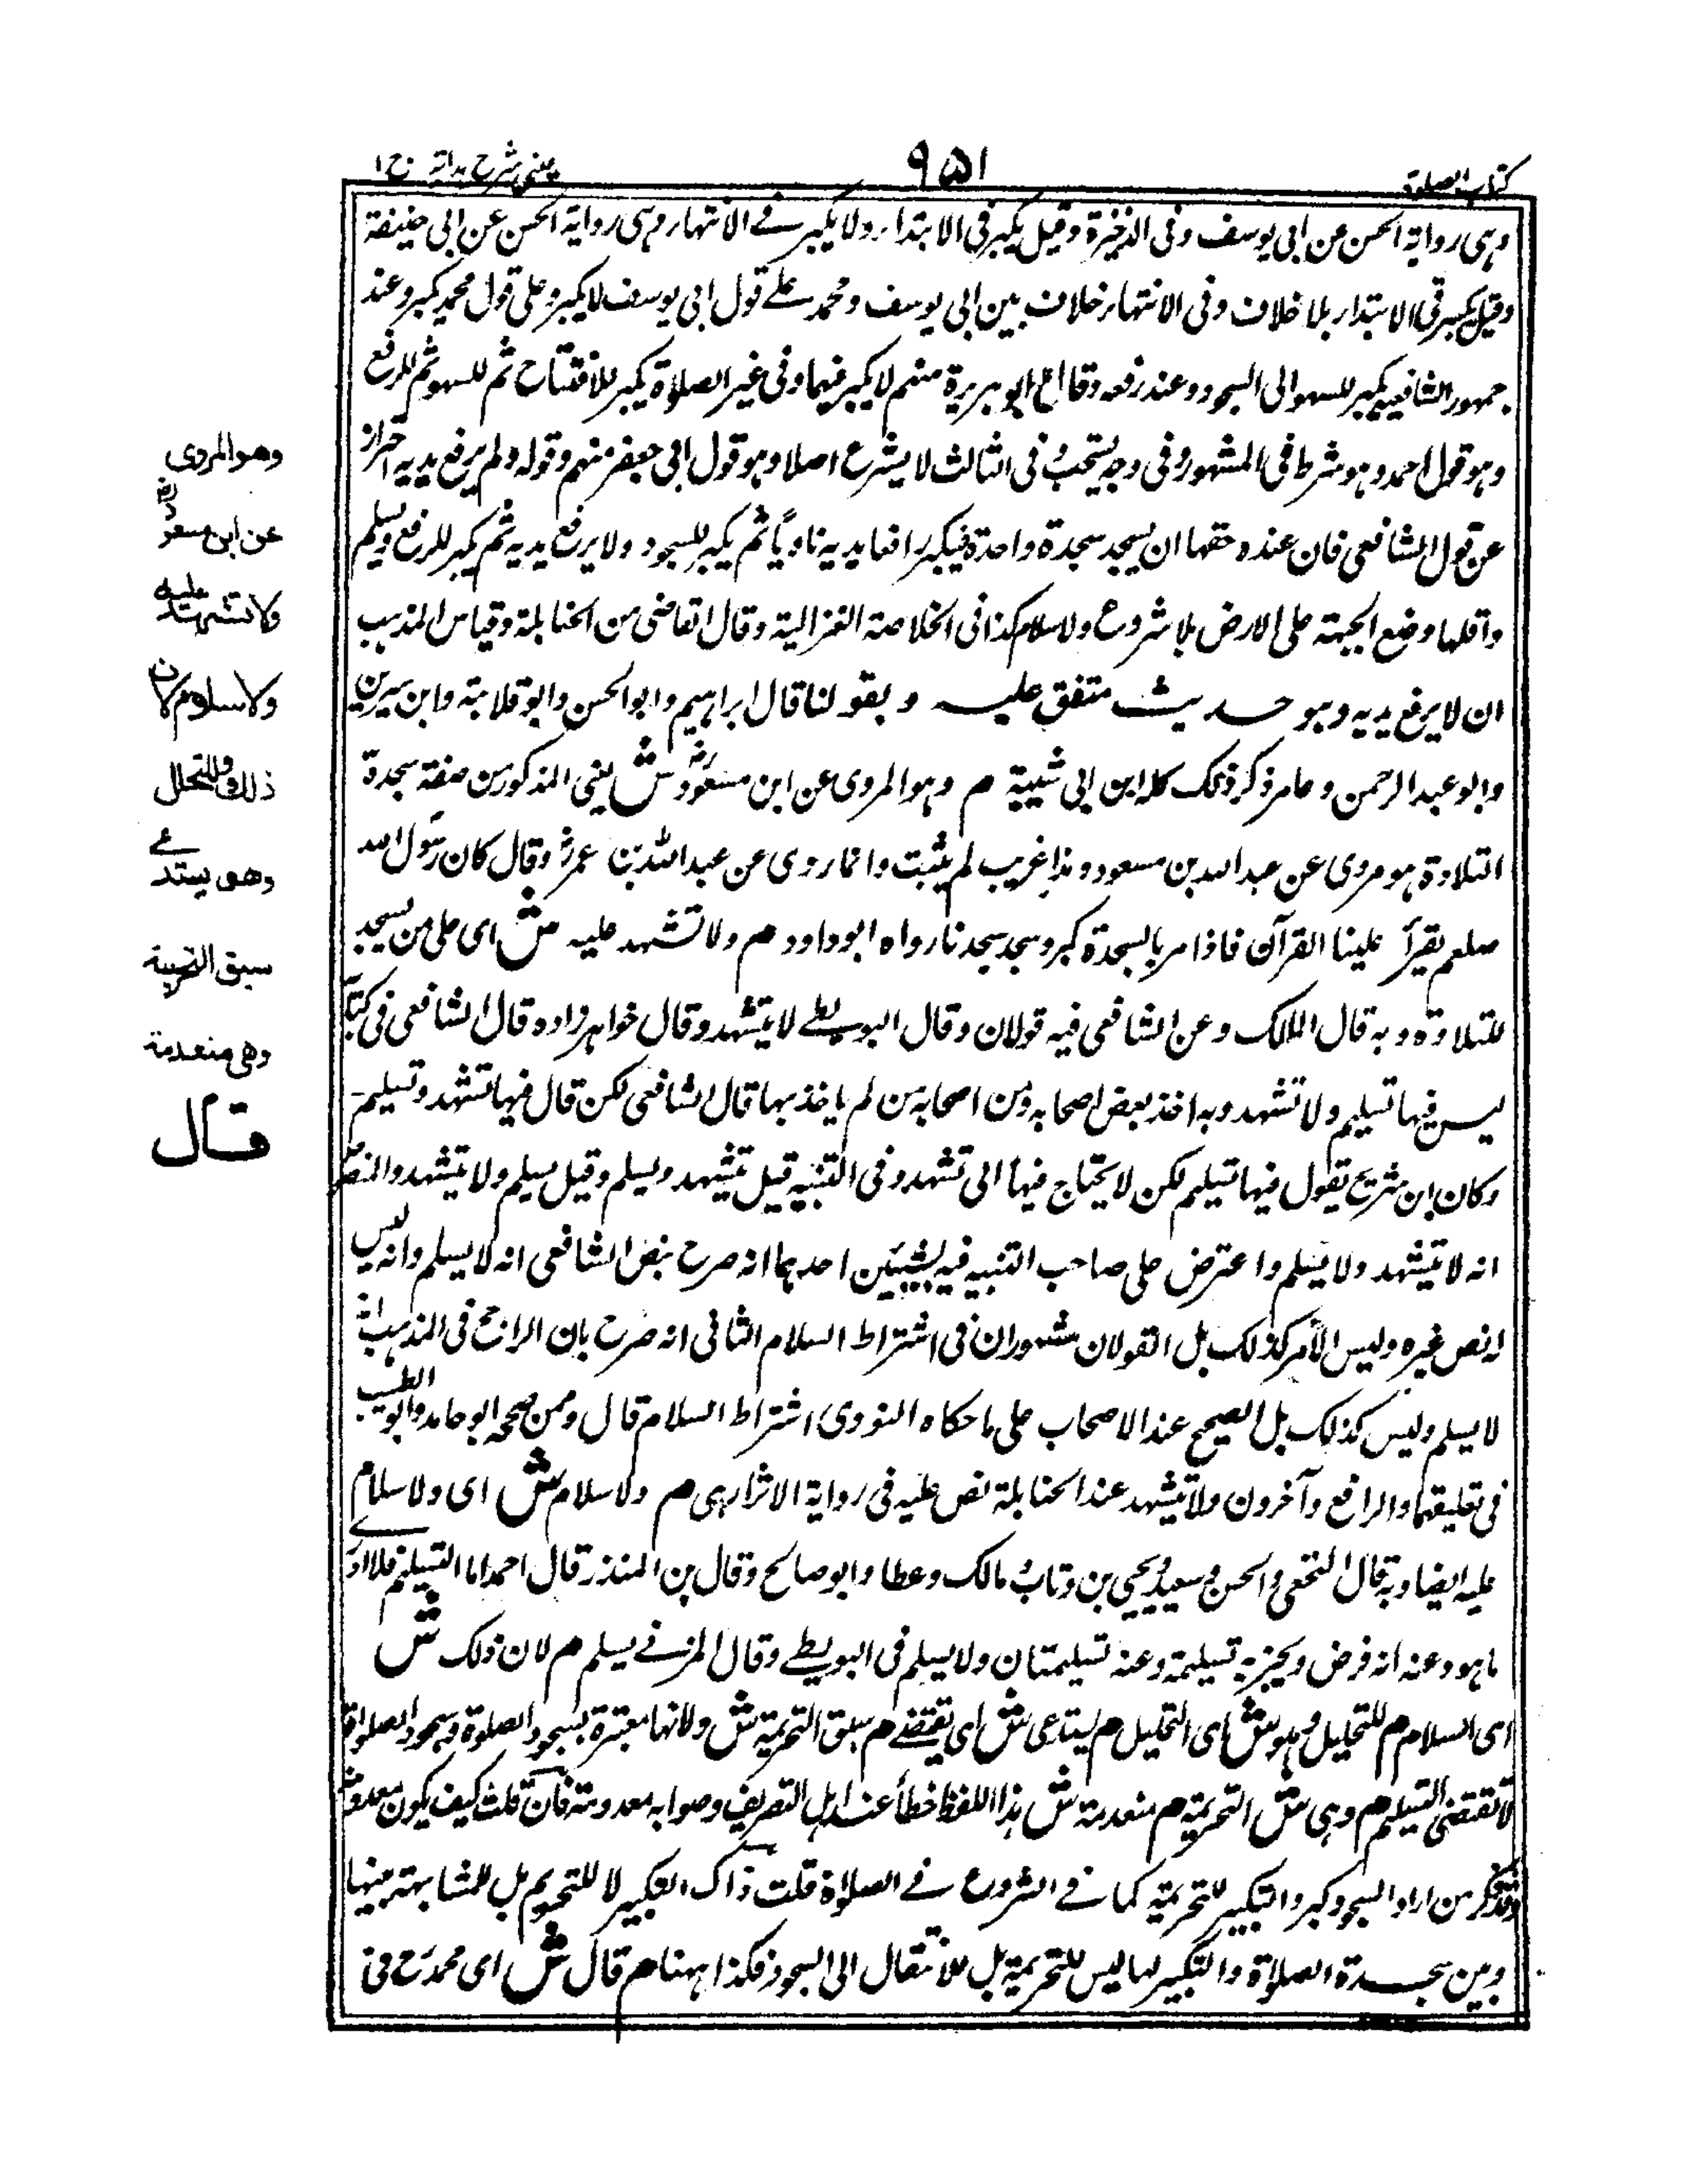 كتاب الصلوة
٩٥١
عینی شرح ہدایہ ج ١
وہی روایة الحسن عن ابی یوسف وفی الذخیرة وقیل یکبر فی الابتداء ولا یکبر فے الانتہاء وہی روایة الحسن عن ابی حنیفة
وقیل یکبر فی الابتداء بلا خلاف وفی الانتہاء خلاف بین ابی یوسف ومحمد علے قول ابی یوسف لا یکبر وعلی قول محمد یکبر وعند
جمہور الشافعیة یکبر للسہو الی السجود وعند رفعه وقال ابو ہریرة منہم لا یکبر فیہا وفی غیر الصلاة یکبر للافتتاح ثم للسہو ثم للرفع
وہو قول احمد وہو شرط فی المشہور وفی وجہ یستحب وفی الثالث لا یشرع اصلا وہو قول ابی جعفر منہم وقوله ولم یرفع یدیه احتراز
عن قول الشافعی فان عنده حقہا ان یسجد سجدة واحدة فیکبر رافعا یدیه ناویًا ثم یکبر للسجود ولا یرفع یدیه ثم یکبر للرفع ویسلم
واقلہا وضع الجبہة علی الارض بلا شروع ولا سلام کذا فی الخلاصة الغزالیة وقال القاضی من الحنابلة وقیاس المذہب
ان لا یرفع یدیه وہو حدیث متفق علیه و بقولنا قال ابراہیم وابو الحسن وابو قلابة وابن سیرین
وابو عبد الرحمن وعامر ذکر ذلک کله ابن ابی شیبة م وہو المروی عن ابن مسعودؓ ش یعنی المذکور من صفة سجدة
التلاوة ہو مروی عن عبد اللہ بن مسعود وہذا غریب لم یثبت وانما روی عن عبد اللہ بن عمرؓ وقال کان رسول اللہ
صلعم یقرأ علینا القرآن فاذا مر بالسجدة کبر وسجد سجدنا رواه ابو داود م ولا تشہد علیه ش ای علی من یسجد
للتلاوة وبه قال المالک وعن الشافعی فیه قولان وقال البویطے لا یتشہد وقال خواہر زاده قال الشافعی فی کتابه
لیس فیہا تسلیم ولا تشہد وبه اخذ بعض اصحابه ومن اصحابه من لم یاخذ بہا قال الشافعی لکن قال فیہا تشہد وتسلیم
وکان ابن شریح یقول فیہا تسلیم لکن لا یحتاج فیہا الی تشہد وفی التنبیه قیل یتشہد ویسلم وقیل یسلم ولا یتشہد والنص
انه لا یتشہد ولا یسلم واعترض علی صاحب التنبیه فیه بشیئین احدہما انه صرح بنص الشافعی انه لا یسلم وانه لیس
له نص غیره ولیس الأمر کذلک بل القولان مشہوران فی اشتراط السلام الثانی انه صرح بان الراجح فی المذہب انه
لا یسلم ولیس کذلک بل الصحیح عند الاصحاب علی ما حکاه النووی اشتراط السلام قال وممن صححه ابو حامد وابو الطیب
فی تعلیقہما والرافع وآخرون ولا یتشہد عند الحنابلة نص علیه فی روایة الاثرم ہی م ولا سلام ش ای ولا سلام
علیه ایضا وبه قال النخعی والحسن وسعید ویحیی بن وثاب ومالک وعطا وابو صالح وقال بن المنذر قال احمد اما التسلیم فلا ادری
ما ہو وعنه انه فرض ویجزیه تسلیمة وعنه تسلیمتان ولا یسلم فی البویطے وقال المزنے یسلم م لان ذلک ش
ای السلام م للتحلیل وہو ش ای التحلیل م یستدعی ش ای یقتضے م سبق التحریمة ش ولانہا معتبرة بسجود الصلوة وسجود الصلواة
لا تقتضی التسلیم م وہی ش التحریمة م منعدمة ش ہذا اللفظ خطأ عند اہل التصریف وصوابه معدومة فان قلت کیف یکون معدومة
وقد ذکر من اراد السجود کبر والتکبیر للتحریمة کما فے الشروع فے الصلاة قلت ذاک التکبیر لا للتحریم بل للمشابہة بینہا
وبین سجدة الصلاة والتکبیر لہا لیس للتحریمة بل للانتقال الی السجود فکذا ہہنا م قال ش ای محمد رح فی
وهو المروی
عن ابن مسعودؓ
ولا تشهد علیه
ولا سلام لان
ذلك للتحلل
وهو یستدعے
سبق التحریمة
وهی منعدمة
قال